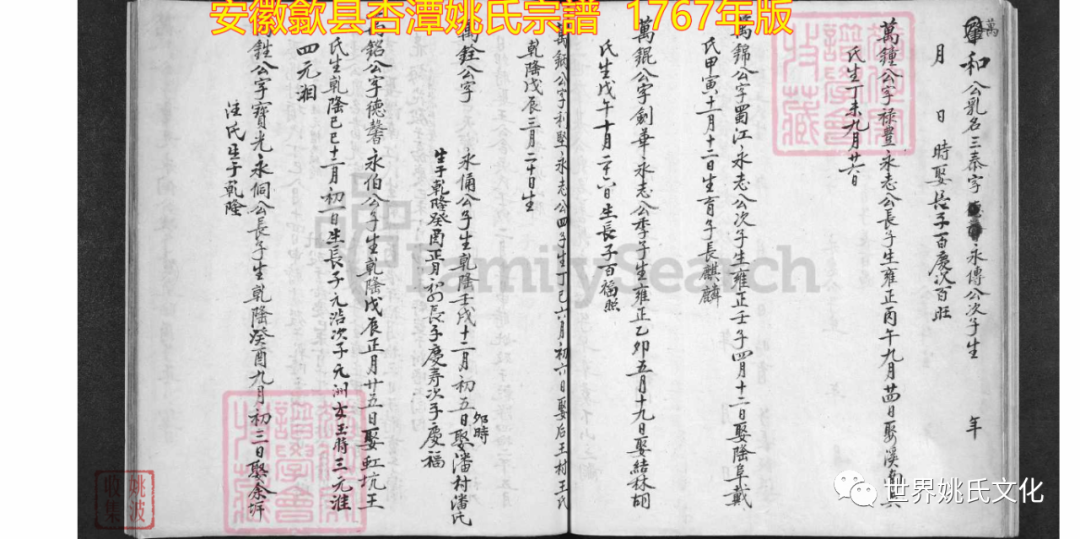 安徽歙县杏潭姚氏宗譜 1767年版
萬
和公乳名三泰字 永傳公次子生 年
月 日 時娶 長子百慶次百旺
萬鍾公字禄豊永志公長子生雍正丙午九月廿四日娶溪
氏生丁未九月廿六日
萬錦公字蜀江永志公次子生雍正壬子四月十二日娶隆阜戴
氏甲寅十一月十二日生育子長麒麟
萬錕公字劍華永志公季子生雍正乙卯五月十九日娶結林胡
氏生戊午十月二十六日生長子百福照
公字利堅永志公四子生丁巳六月初六日娶后王村王氏
乾隆戊辰三月二十日生
萬銓公字 永俑公子生乾隆壬戌十二月初五日卯時娶潘村潘氏
生于乾隆癸酉正月初 長子慶壽次子慶福
鋁公字德馨永伯公子生乾隆戊辰正月廿五日娶虹坑王
氏生乾隆己巳十二月初一日生長子元浩次子元洲 三元淮
四元湘
鉎公字寶光永侗公長子生乾隆癸酉九月初三日娶余坪
汪氏生于乾隆
FamilySearch
姚波
收集
世界姚氏文化